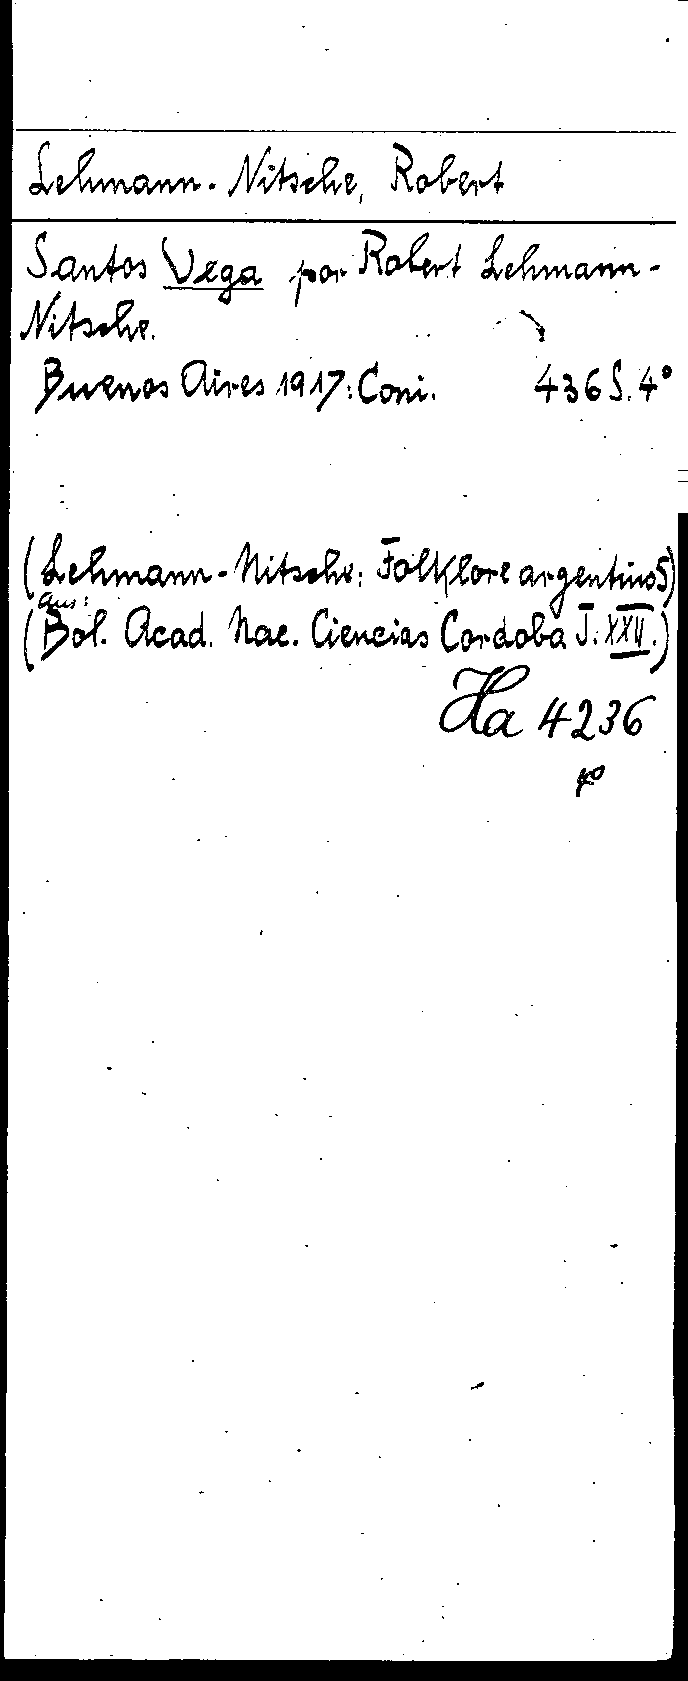 Lehmann-Nitsche, Robert
Santos Vega por Robert Lehmann-
Nitsche.
Buenos Aires 1917: Coni. 436 S. 4°
(Lehmann-Nitsche: Folklore argentino 5)
aus:
(Bol. Acad. Nac. Ciencias Cordoba T. XXII.)
Ha 4236
4°